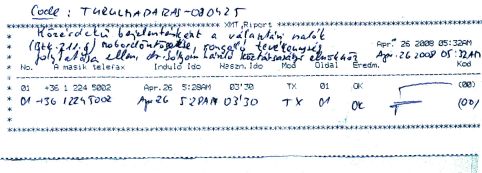 Code : TURULMADARAS-080425
XMT Riport
Közérdekű bejelentésként a választási malőr
(Btk. 211.§)
ellen, dr. Sólyom László köztársasági elnökhöz
Apr. 26 2008 05:32AM
Apr. 26 2008 05:32AM
No. A masik telefax Indulo Ido Haszn.Ido Mod Oldal Eredm. Kod
01 +36 1 224 5002 Apr.26 5:28AM 03'30 TX 01 OK (00)
01 +36 1 224 5002 Apr 26 5:28AM 03'30 TX 01 OK (00)